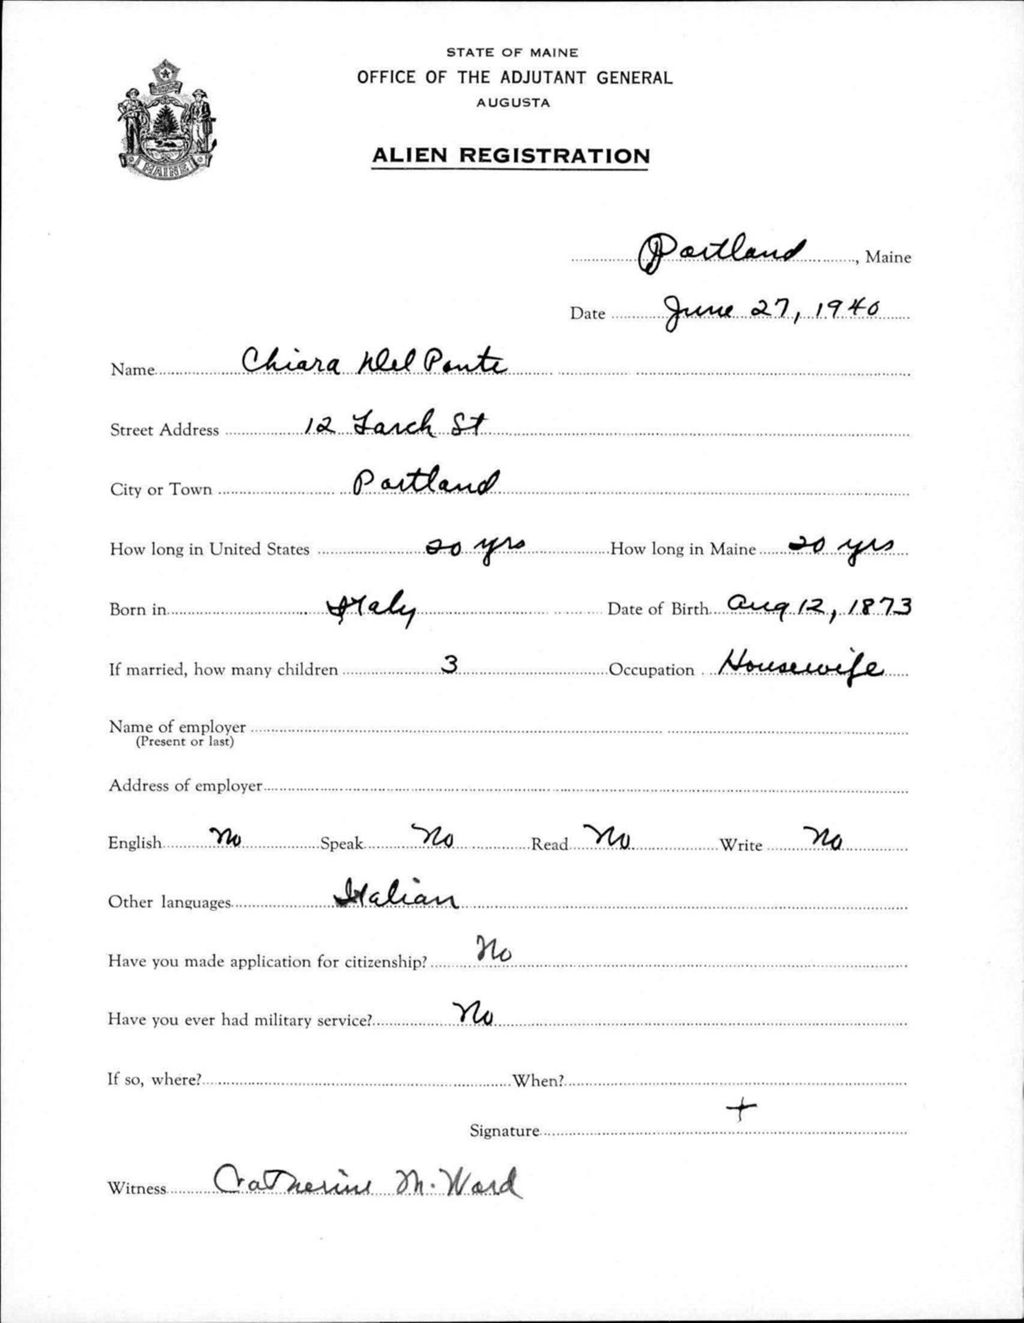 STATE OF MAINE
OFFICE OF THE ADJUTANT GENERAL
AUGUSTA
ALIEN REGISTRATION
MAINE
Portland, Maine
Date June 27, 1940
Name Chiara Del Ponte
Street Address 12 Larch St
City or Town Portland
How long in United States 20 yrs How long in Maine 20 yrs
Born in Italy Date of Birth Aug 12, 1873
If married, how many children 3 Occupation Housewife
Name of employer
(Present or last)
Address of employer
English No Speak No Read No Write No
Other languages Italian
Have you made application for citizenship? No
Have you ever had military service? No
If so, where? When?
Signature +
Witness Catherine M. Ward